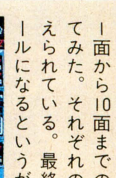 ー面から10面までの
てみた。それぞれの
えられている。最終
ールになるというが